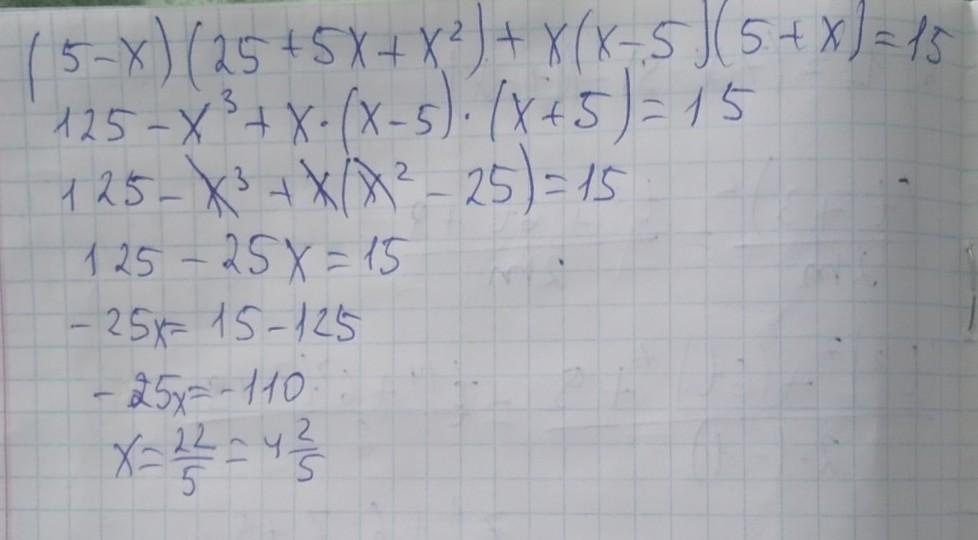 (5-x)(25+5x+x²)+x(x-5)(5+x)=15
125-x³+x·(x-5)·(x+5)=15
125-x³+x(x²-25)=15
125-25x=15
-25x=15-125
-25x=-110
x=22/5=4 2/5